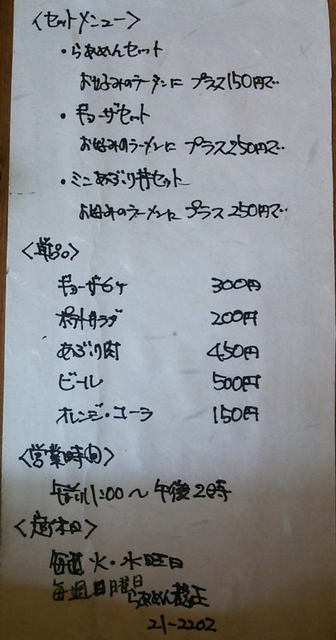 〈セットメニュー〉
・らあめんセット
お好みのラーメンに プラス150円で‥
・ギョーザセット
お好みのラーメンに プラス250円で‥
・ミニあぶり丼セット
お好みのラーメンに プラス250円で‥
〈単品〉
ギョーザ6ヶ 300円
ポテトサラダ 200円
あぶり肉 450円
ビール 500円
オレンジ・コーラ 150円
〈営業時間〉
午前11:00〜午後2時
〈定休日〉
毎週 火・水曜日
毎週日曜日
らあめん
21-2202